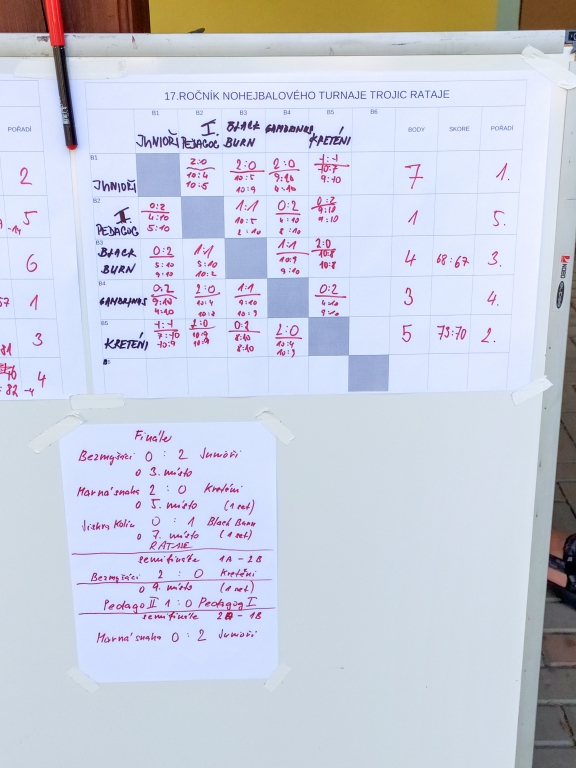 17.ROČNÍK NOHEJBALOVÉHO TURNAJE TROJIC RATAJE
POŘADÍ
2
5
6
1
3
4
B1 B2 B3 B4 B5 B6
JUNIOŘI I. PEDAGOG BLACK BURN GAMBRINUS KRETÉNI BODY SKORE POŘADÍ
B1
JUNIOŘI 2:0 2:0 2:0 1:1 7 1.
10:4 10:5 9:10 10:7
10:5 10:9 9:10
B2
I. PEDAGOG 0:2 1:1 0:2 0:2 1 5.
4:10 10:5 4:10 9:10
5:10 2:10 8:10
B3
BLACK BURN 0:2 1:1 1:1 2:0 4 68:67 3.
5:10 5:10 10:9 10:8
9:10 10:2 9:10 10:8
B4
GAMBRINUS 0:2 2:0 1:1 0:2 3 4.
9:10 10:4 9:10 4:10
4:10 10:8 10:9 9:10
B5
KRETÉNI 1:1 2:0 0:2 2:0 5 75:70 2.
7:10 10:9 8:10 10:4
10:9 8:10 10:9
Finále
Bezmyšáci 0 : 2 Junioři
o 3. místo
Marná snaha 2 : 0 Kreténi
o 5. místo (1 set)
Jiskra Kolín 0 : 1 Black Burn
o 7. místo (1 set)
RATAJE
semifinále 1A - 2B
Bezmyšáci 2 : 0 Kreténi
o 9. místo (1 set)
Pedagog II 1 : 0 Pedagog I
semifinále 2A - 1B
Marná snaha 0 : 2 Junioři